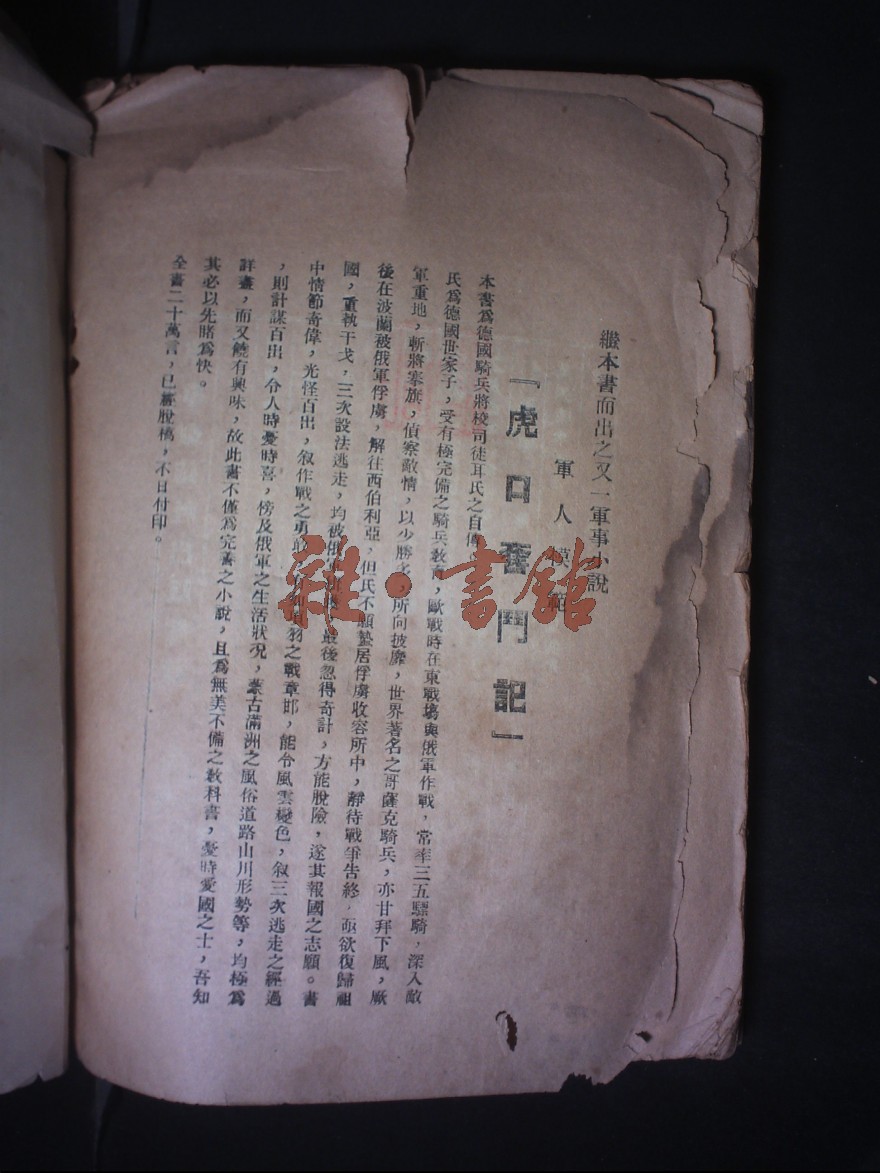 繼本書而出之又一軍事小說
軍人模範
『虎口奮鬥記』
本書為德國騎兵將校司徒耳氏之自傳
氏為德國世家子，受有極完備之騎兵教育，歐戰時在東戰場與俄軍作戰，常率三五驃騎，深入敵
軍重地，斬將搴旗，偵察敵情，以少勝多，所向披靡，世界著名之哥薩克騎兵，亦甘拜下風，厥
後在波蘭被俄軍俘虜，解往西伯利亞，但氏不願蟄居俘虜收容所中，靜待戰爭告終，亟欲復歸祖
國，重執干戈，三次設法逃走，均被俄軍 最後忽得奇計，方能脫險，遂其報國之志願。書
中情節奇偉，光怪百出，叙作戰之勇 羽之戰章邯，能令風雲變色，叙三次逃走之經過
，則計謀百出，令人時憂時喜，傍及俄軍之生活狀況，蒙古滿洲之風俗道路山川形勢等，均極為
詳盡，而又饒有興味，故此書不僅為完善之小說，且為無美不備之教科書，憂時愛國之士，吾知
其必以先睹為快。
全書二十萬言，已經脫稿，不日付印。
雜·書館